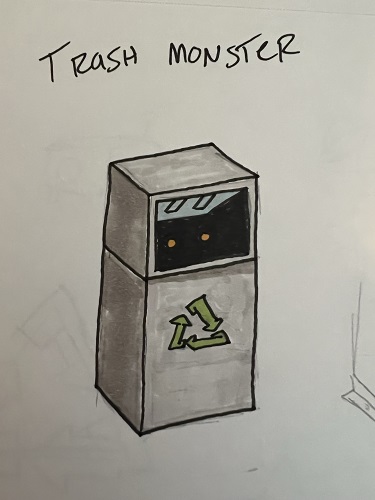 TRASH MONSTER